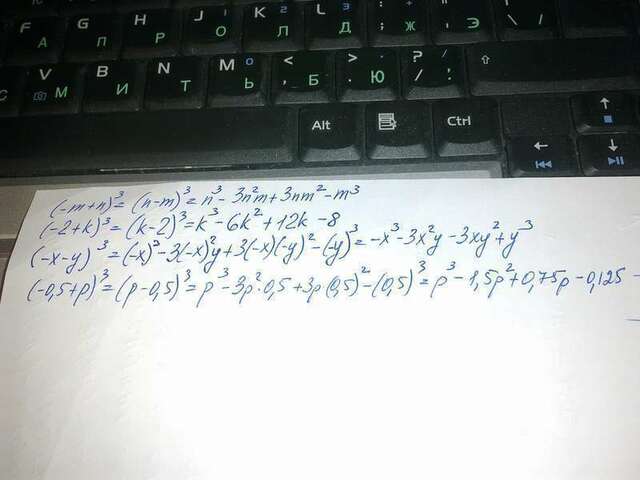 F А G П H Р J О 1 K Л 2 L Д 3 : ; Ж " ' Э |
C V М B И N Т M Ь 0 < , Б > . Ю ? / .
Alt Ctrl
(-m+n)³=(n-m)³=n³-3n²m+3nm²-m³
(-2+k)³=(k-2)³=k³-6k²+12k-8
(-x-y)³=(-x)³-3(-x)²y+3(-x)(-y)²-(-y)³=-x³-3x²y-3xy²+y³
(-0,5+p)³=(p-0,5)³=p³-3p²·0,5+3p(0,5)²-(0,5)³=p³-1,5p²+0,75p-0,125